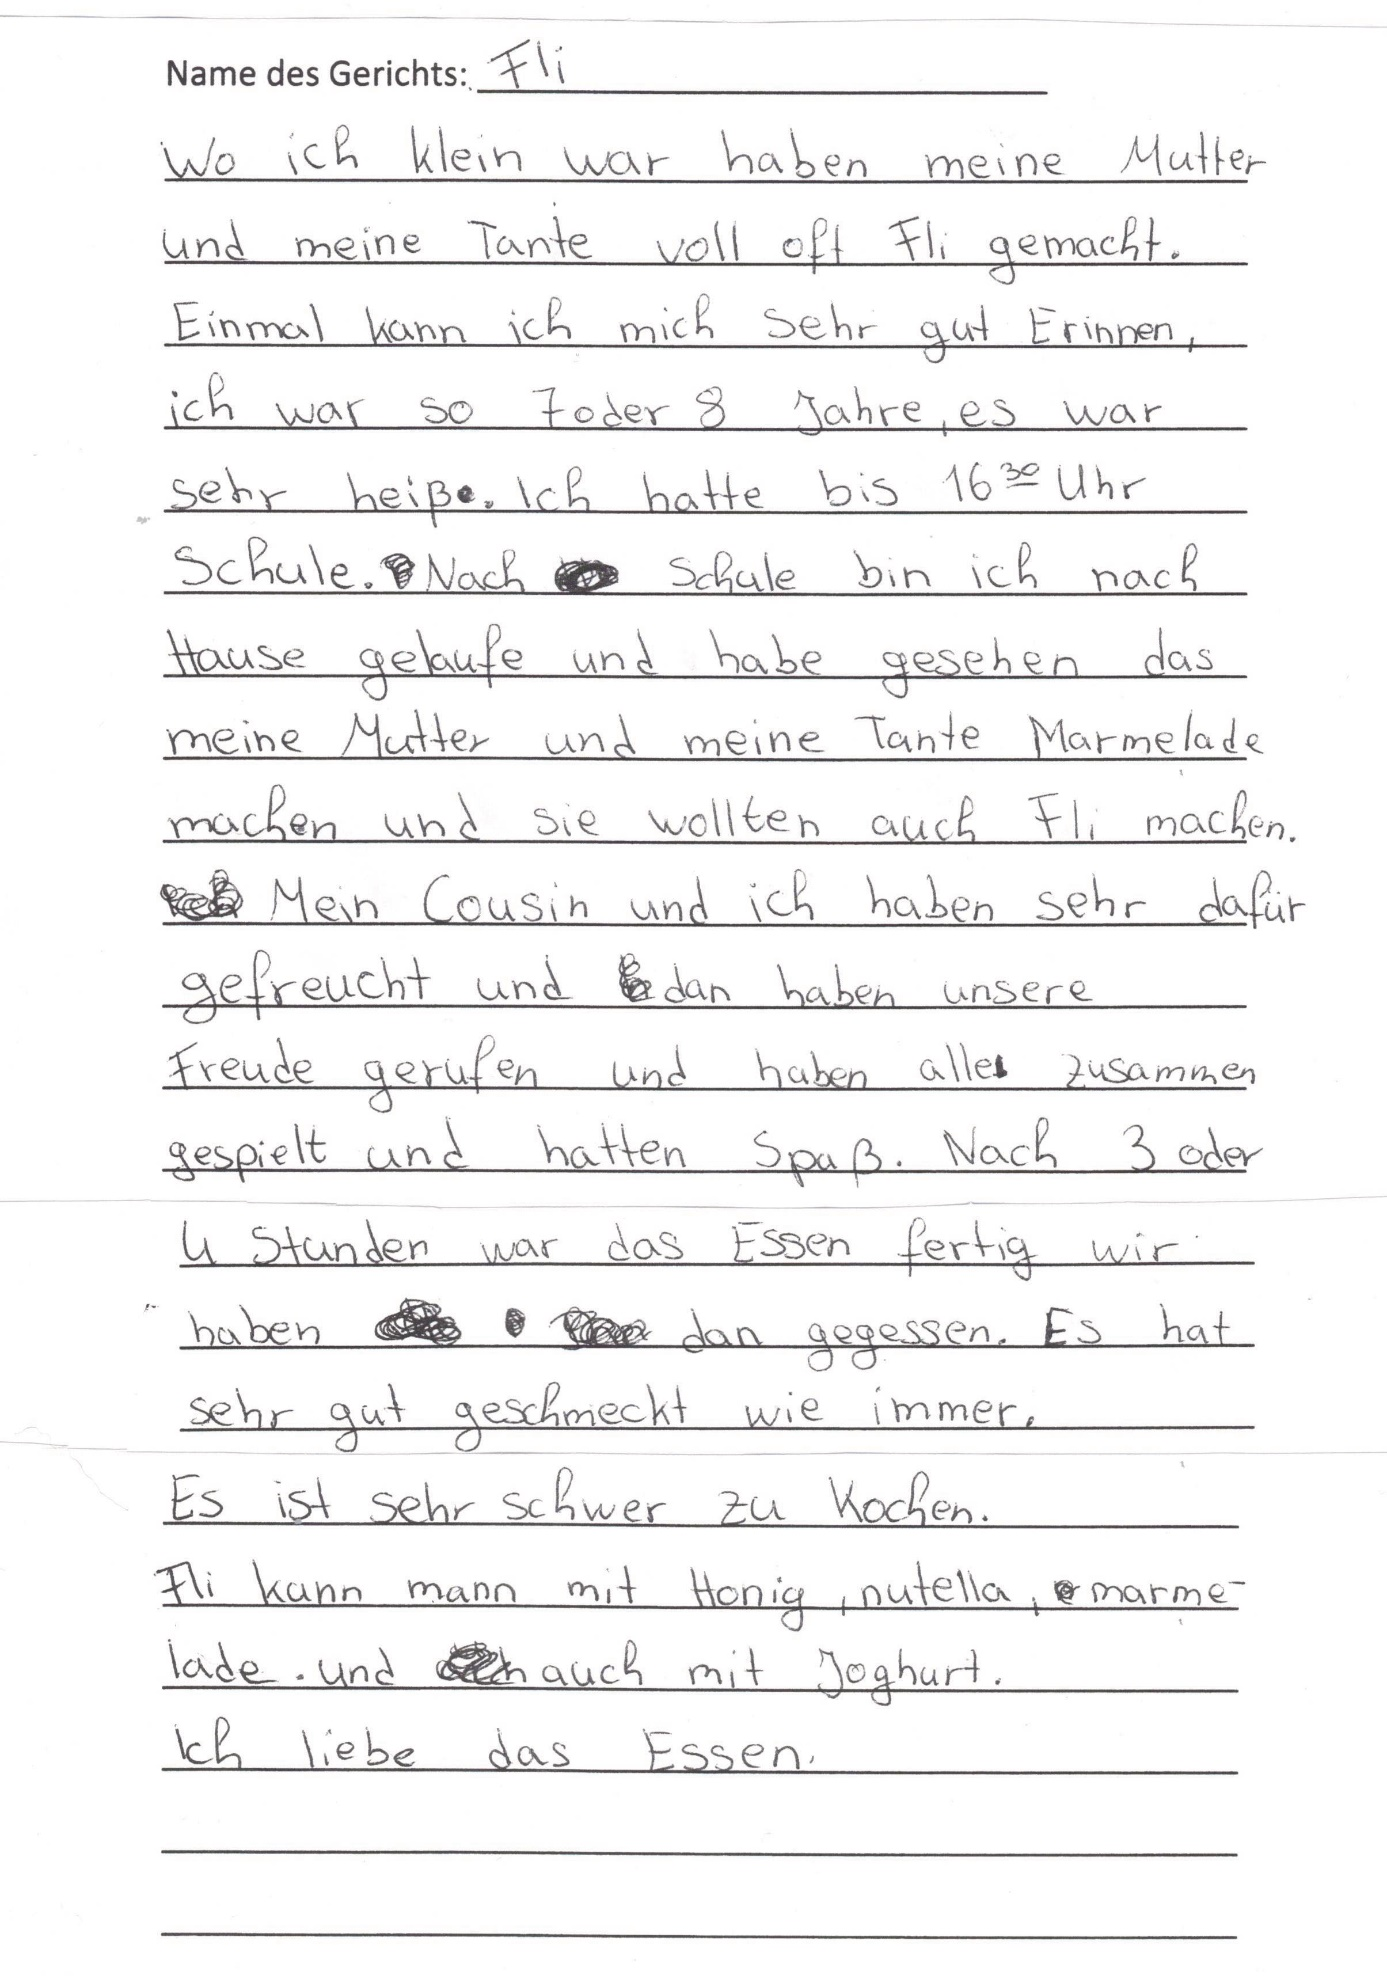 Name des Gerichts: Fli
Wo ich klein war haben meine Mutter
und meine Tante voll oft Fli gemacht.
Einmal kann ich mich sehr gut Erinnen,
ich war so 7 oder 8 Jahre, es war
sehr heiß. Ich hatte bis 16 30 Uhr
Schule. Nach Schule bin ich nach
Hause gelaufe und habe gesehen das
meine Mutter und meine Tante Marmelade
machen und sie wollten auch Fli machen.
Mein Cousin und ich haben sehr dafür
gefreucht und dan haben unsere
Freude gerufen und haben alle zusammen
gespielt und hatten Spaß. Nach 3 oder
4 Stunden war das Essen fertig wir
haben dan gegessen. Es hat
sehr gut geschmeckt wie immer.
Es ist sehr schwer zu Kochen.
Fli kann mann mit Honig, nutella, marme-
lade. und auch mit Joghurt.
Ich liebe das Essen.